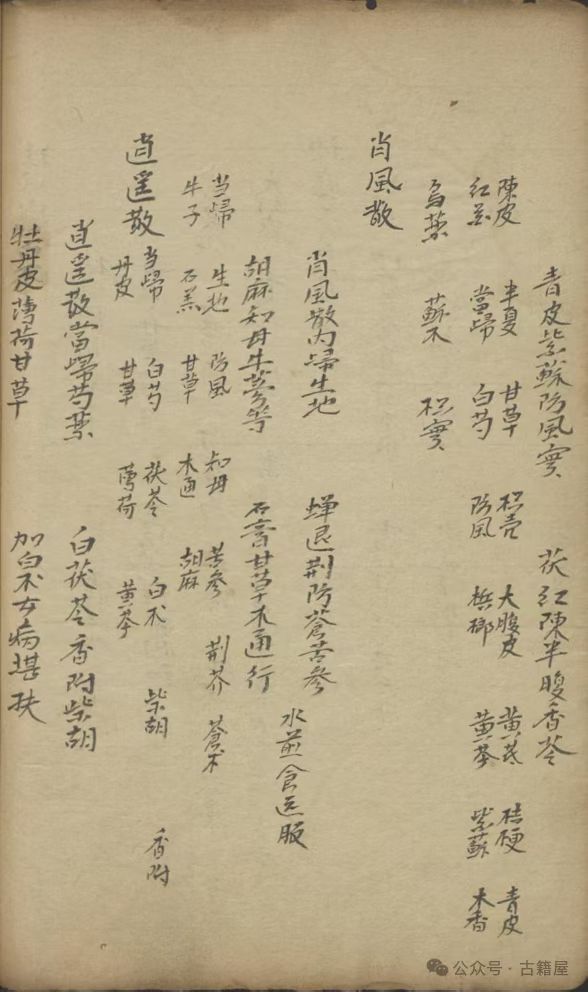 青皮紫蘇防風實 茯紅陳半腹香苓
陳皮 半夏 甘草 枳壳 大腹皮 黄芪 桔梗 青皮
紅 當歸 白芍 防風 梹榔 黄芩 紫蘇 木香
烏藥 蘇木 枳實
肖風散
肖風散內歸生地 蟬退荆防蒼苦參
胡麻知母牛蒡等 石膏甘草木通行 水煎食远服
当歸 生地 防風 知母 苦參 荆芥 蒼术
牛子 石羔 甘草 木通 胡麻
逍遥散 当歸 白芍 茯苓 白术 柴胡 香附
丹皮 甘草 薄荷 黄芩
逍遥散當歸芍藥 白茯苓香附柴胡
牡丹皮薄荷甘草 加白术女病堪扶
公众号·古籍屋